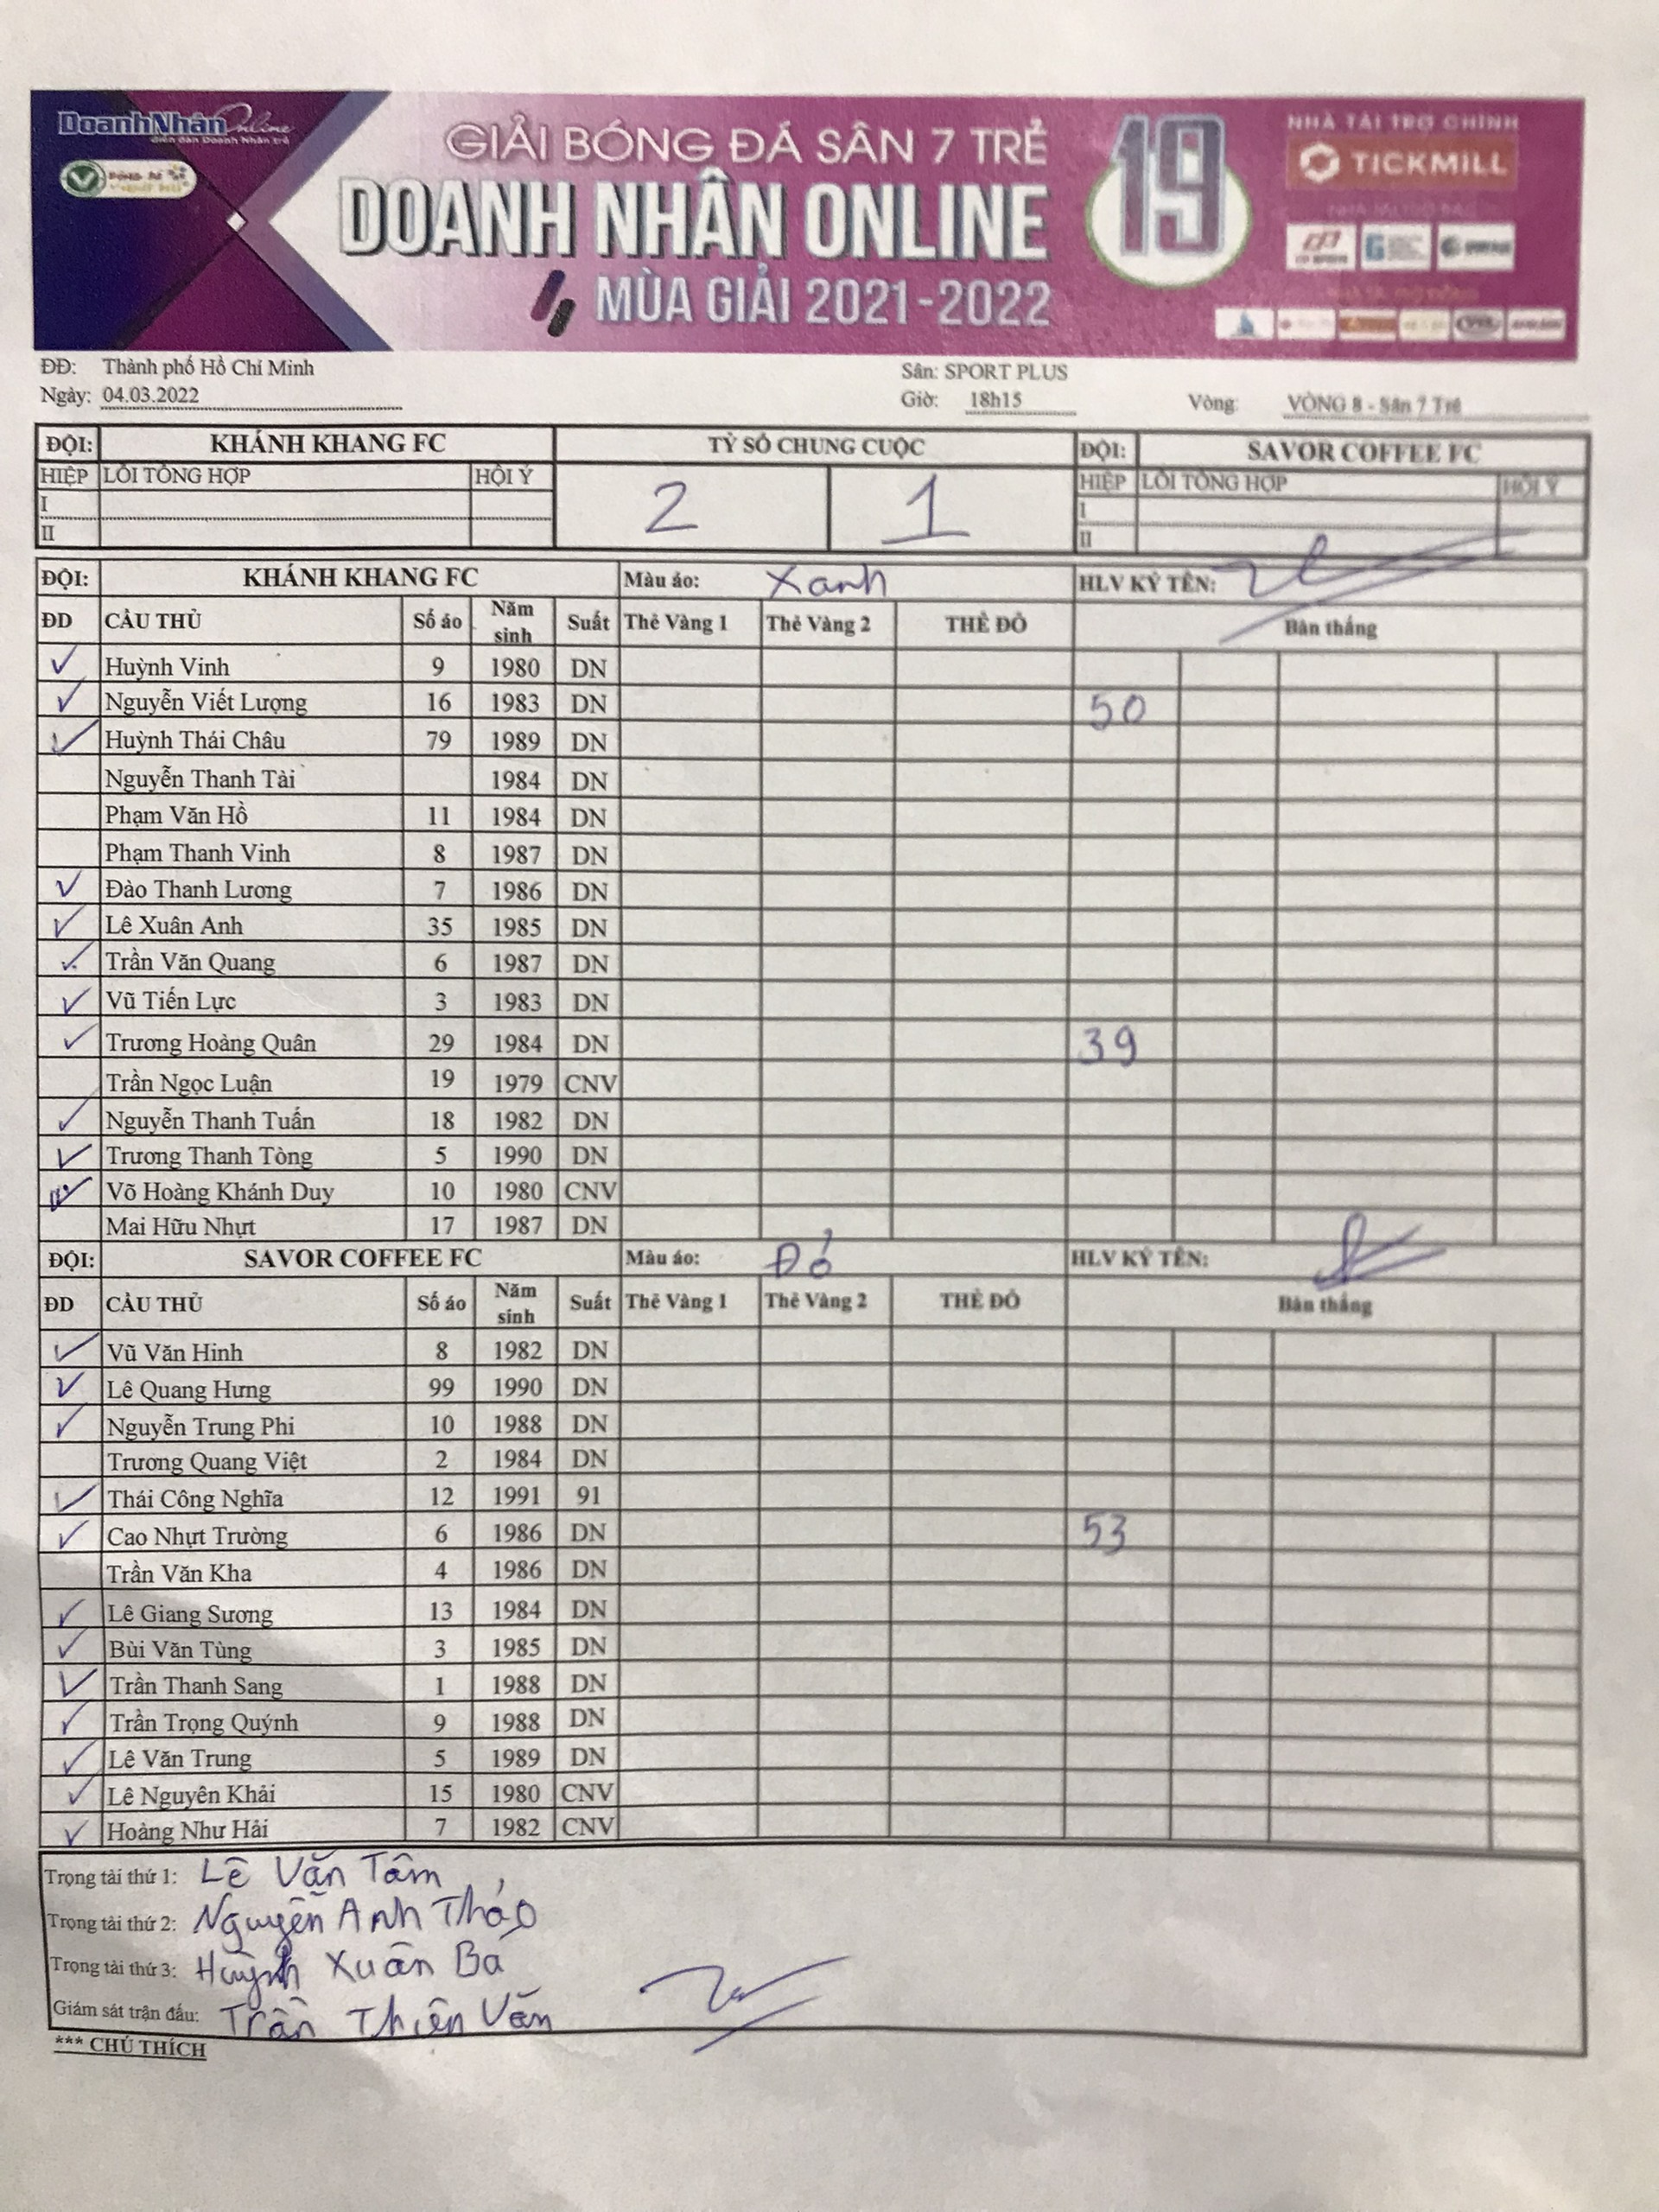 DoanhNhân Online
diễn đàn Doanh Nhân trẻ
GIẢI BÓNG ĐÁ SÂN 7 TRẺ
DOANH NHÂN ONLINE
MÙA GIẢI 2021-2022
19
NHÀ TÀI TRỢ CHÍNH
TICKMILL
ĐĐ: Thành phố Hồ Chí Minh Sân: SPORT PLUS
Ngày: 04.03.2022 Giờ: 18h15 Vòng: VÒNG 8 - Sân 7 Trẻ
ĐỘI: KHÁNH KHANG FC TỶ SỐ CHUNG CUỘC ĐỘI: SAVOR COFFEE FC
HIỆP LỖI TỔNG HỢP HỘI Ý 2 1 HIỆP LỖI TỔNG HỢP HỘI Ý
I I
II II
ĐỘI: KHÁNH KHANG FC Màu áo: Xanh HLV KÝ TÊN:
ĐD CẦU THỦ Số áo Năm sinh Suất Thẻ Vàng 1 Thẻ Vàng 2 THẺ ĐỎ Bàn thắng
✓ Huỳnh Vinh 9 1980 DN
✓ Nguyễn Viết Lượng 16 1983 DN 50
✓ Huỳnh Thái Châu 79 1989 DN
Nguyễn Thanh Tài 1984 DN
Phạm Văn Hồ 11 1984 DN
Phạm Thanh Vinh 8 1987 DN
✓ Đào Thanh Lương 7 1986 DN
✓ Lê Xuân Anh 35 1985 DN
✓ Trần Văn Quang 6 1987 DN
✓ Vũ Tiến Lực 3 1983 DN
✓ Trương Hoàng Quân 29 1984 DN 39
Trần Ngọc Luận 19 1979 CNV
✓ Nguyễn Thanh Tuấn 18 1982 DN
✓ Trương Thanh Tòng 5 1990 DN
✓ Võ Hoàng Khánh Duy 10 1980 CNV
Mai Hữu Nhựt 17 1987 DN
ĐỘI: SAVOR COFFEE FC Màu áo: Đỏ HLV KÝ TÊN:
ĐD CẦU THỦ Số áo Năm sinh Suất Thẻ Vàng 1 Thẻ Vàng 2 THẺ ĐỎ Bàn thắng
✓ Vũ Văn Hinh 8 1982 DN
✓ Lê Quang Hưng 99 1990 DN
✓ Nguyễn Trung Phi 10 1988 DN
Trương Quang Việt 2 1984 DN
✓ Thái Công Nghĩa 12 1991 91
✓ Cao Nhựt Trường 6 1986 DN 53
Trần Văn Kha 4 1986 DN
✓ Lê Giang Sương 13 1984 DN
✓ Bùi Văn Tùng 3 1985 DN
✓ Trần Thanh Sang 1 1988 DN
✓ Trần Trọng Quýnh 9 1988 DN
✓ Lê Văn Trung 5 1989 DN
✓ Lê Nguyên Khải 15 1980 CNV
✓ Hoàng Như Hải 7 1982 CNV
Trọng tài thứ 1: Lê Văn Tâm
Trọng tài thứ 2: Nguyễn Anh Thảo
Trọng tài thứ 3: Huỳnh Xuân Bá
Giám sát trận đấu: Trần Thiện Văn
*** CHÚ THÍCH